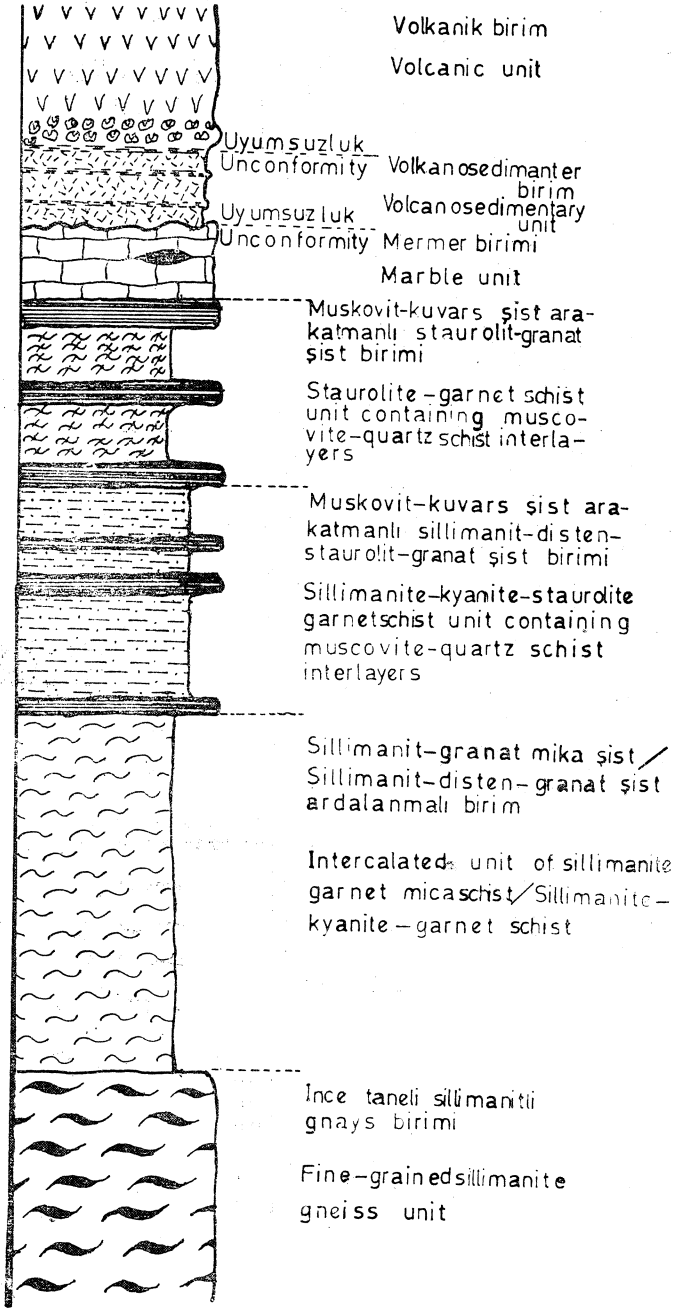 Volkanik birim
Volcanic unit
Uyumsuzluk
Unconformity
Volkanosedimanter
birim
Volcanosedimentary
unit
Uyumsuzluk
Unconformity
Mermer birimi
Marble unit
Muskovit-kuvars şist ara-
katmanlı staurolit-granat
şist birimi
Staurolite-garnet schist
unit containing musco-
vite-quartz schist interla-
yers
Muskovit-kuvars şist ara-
katmanlı sillimanit-disten-
staurolit-granat şist birimi
Sillimanite-kyanite-staurolite
garnetschist unit containing
muscovite-quartz schist
interlayers
Sillimanit-granat mika şist/
Sillimanit-disten-granat şist
ardalanmalı birim
Intercalated unit of sillimanite
garnet micaschist/Sillimanite-
kyanite-garnet schist
İnce taneli sillimanitli
gnays birimi
Fine-grained sillimanite
gneiss unit